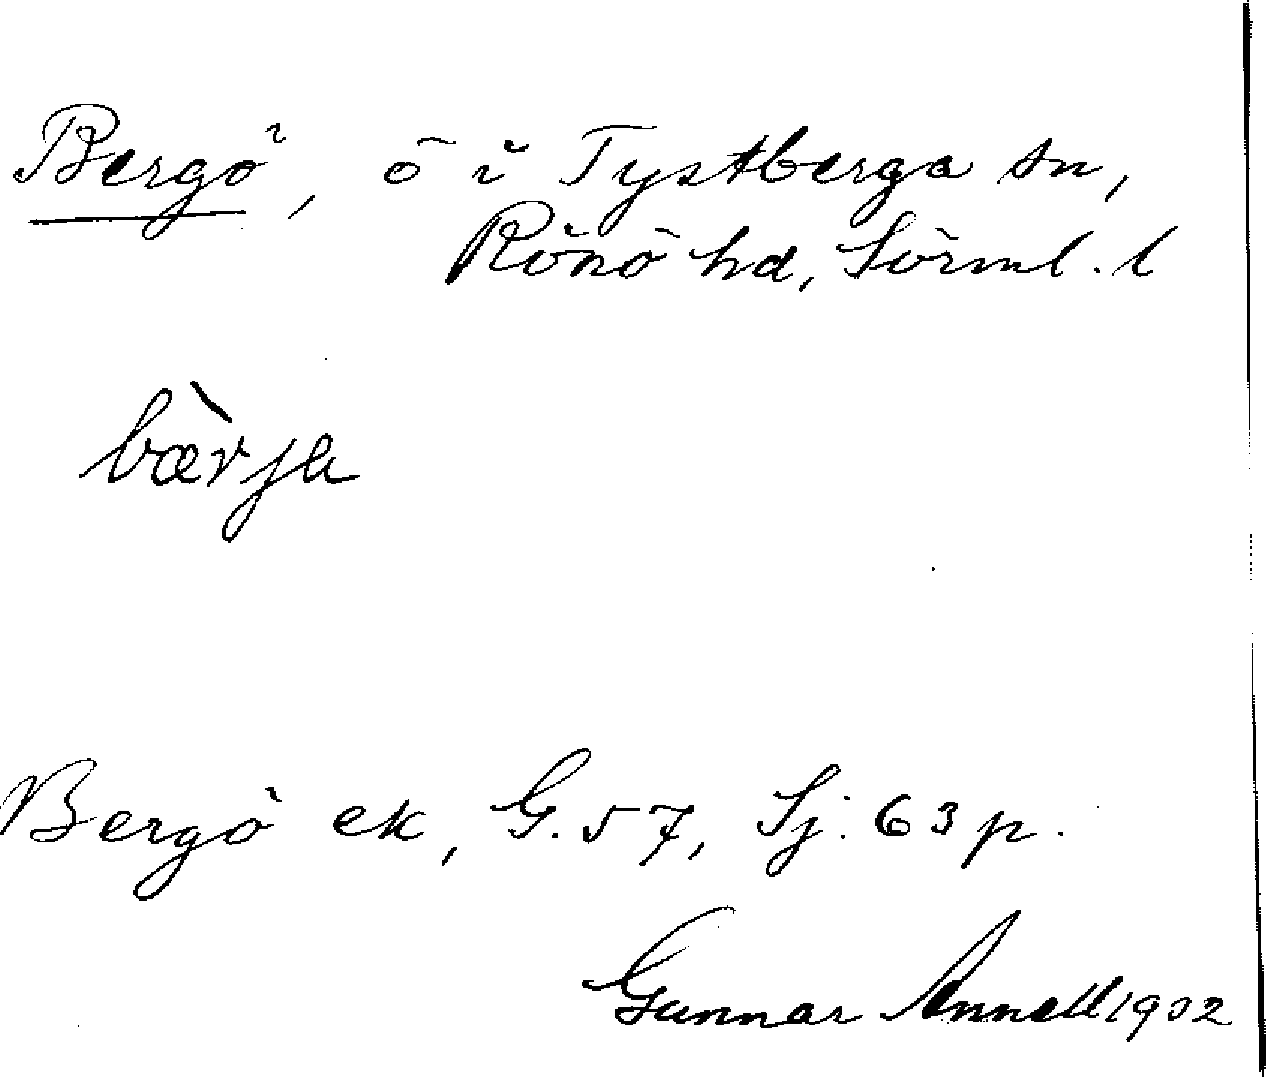 Bergö, ö i Tystberga sn,
Rönö hd, Sörml. l
bæ̀rja
Bergö ek, G. 57, Sj. 63 p.
Gunnar Annell 1932